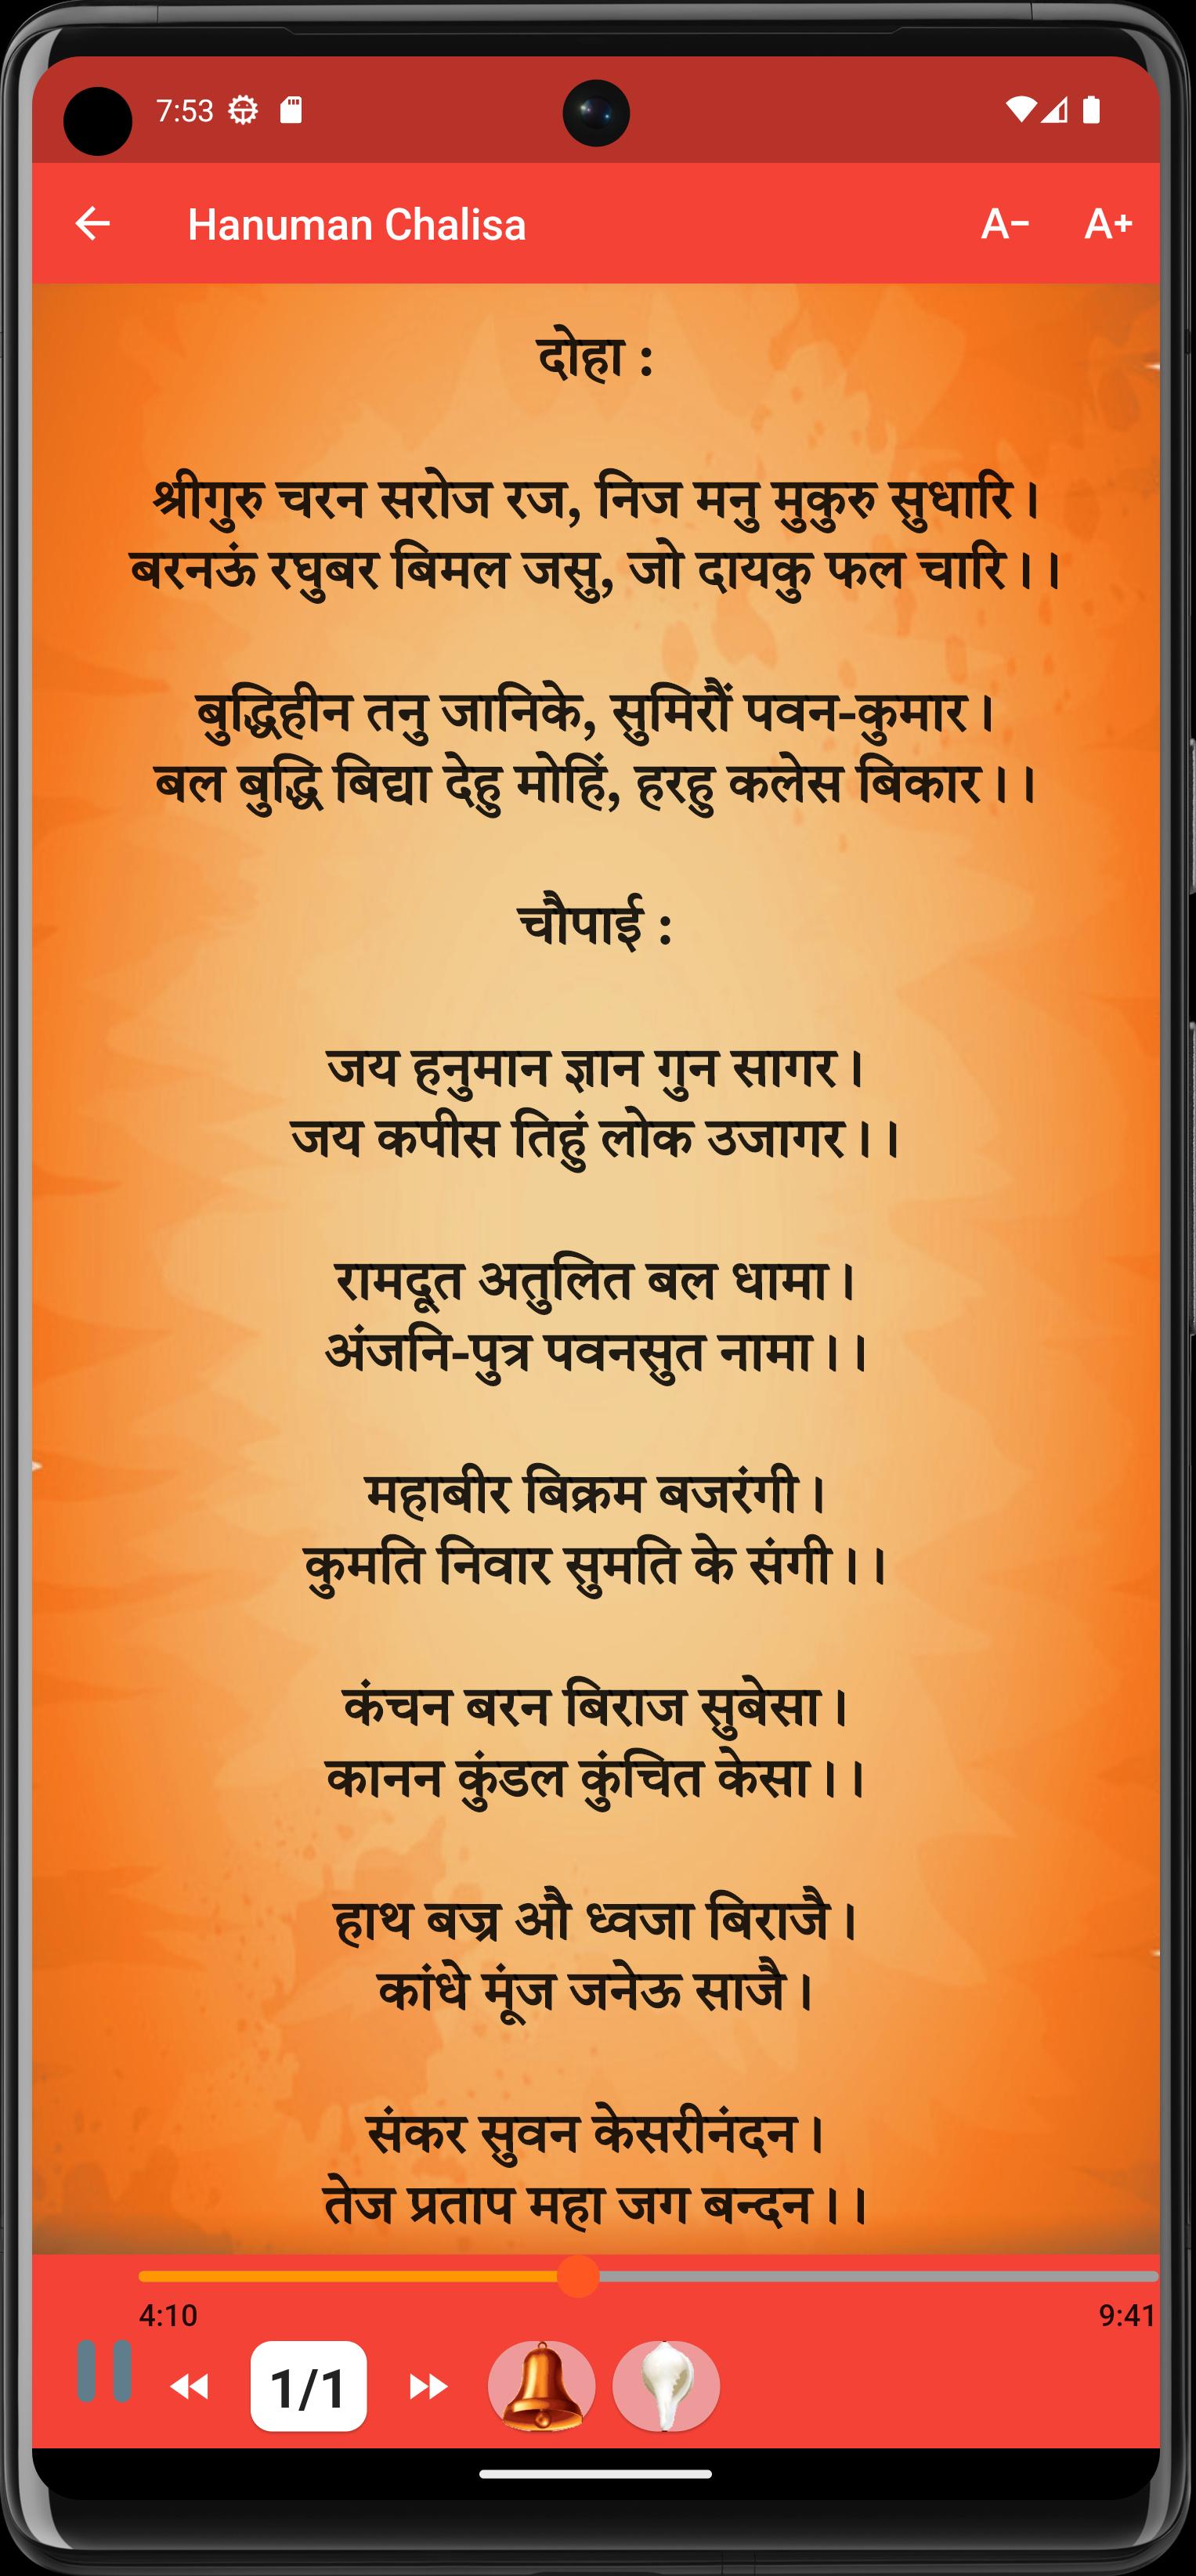 7:53
Hanuman Chalisa
A- A+
दोहा :
श्रीगुरु चरन सरोज रज, निज मनु मुकुरु सुधारि।
बरनऊं रघुबर बिमल जसु, जो दायकु फल चारि।।
बुद्धिहीन तनु जानिके, सुमिरौं पवन-कुमार।
बल बुद्धि बिद्या देहु मोहिं, हरहु कलेस बिकार।।
चौपाई :
जय हनुमान ज्ञान गुन सागर।
जय कपीस तिहुं लोक उजागर।।
रामदूत अतुलित बल धामा।
अंजनि-पुत्र पवनसुत नामा।।
महाबीर बिक्रम बजरंगी।
कुमति निवार सुमति के संगी।।
कंचन बरन बिराज सुबेसा।
कानन कुंडल कुंचित केसा।।
हाथ बज्र औ ध्वजा बिराजै।
कांधे मूंज जनेऊ साजै।
संकर सुवन केसरीनंदन।
तेज प्रताप महा जग बन्दन।।
4:10 9:41
1/1